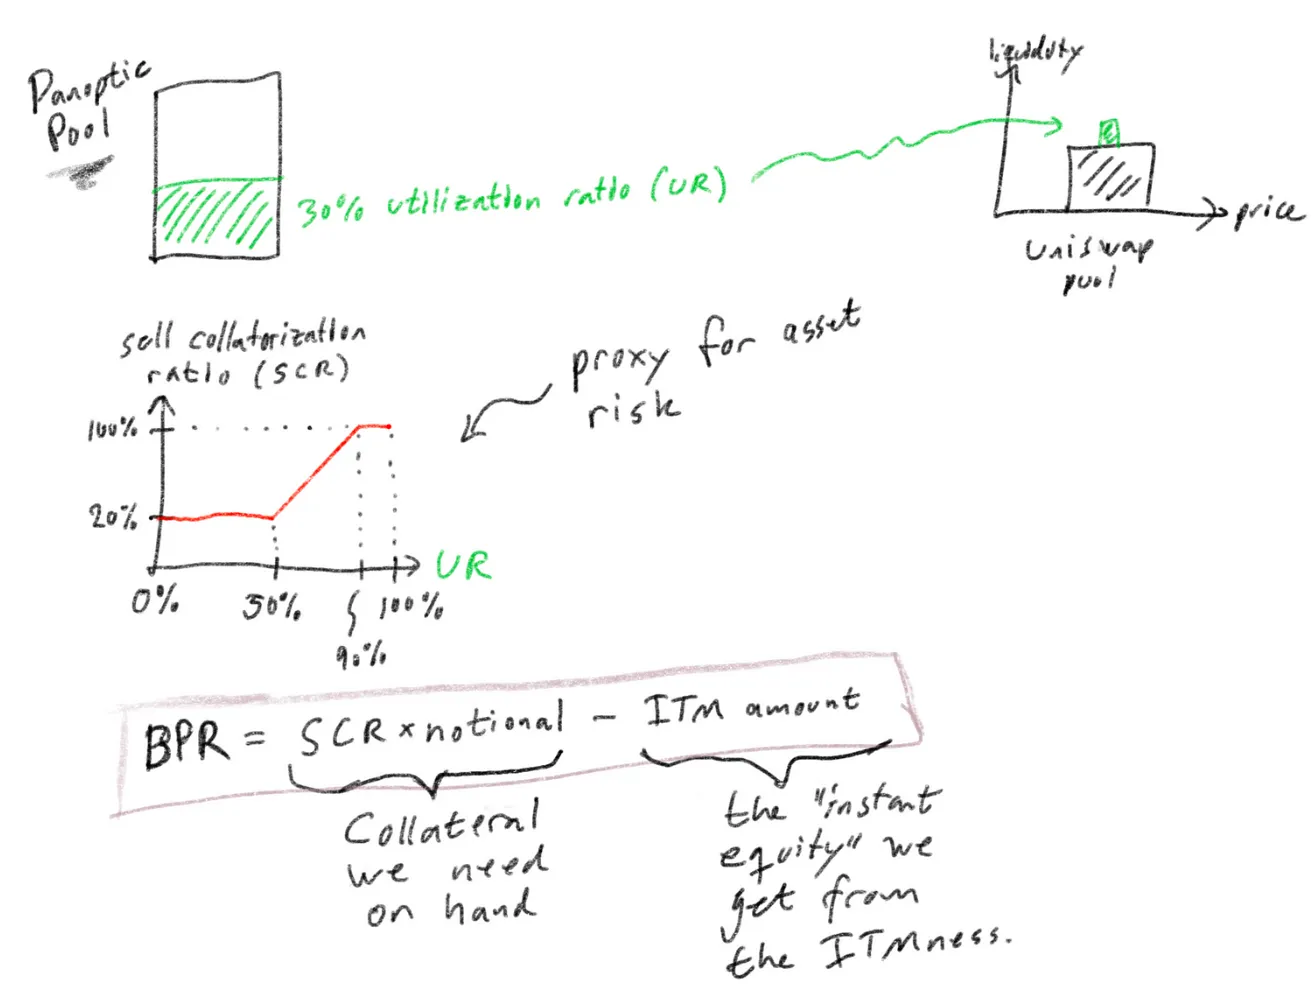 Panoptic
Pool
30% utilization ratio (UR)
liquidity
price
Uniswap
pool
sell collatorization
ratio (SCR)
proxy for asset
risk
100%
20%
UR
0%
50%
100%
90%
BPR = SCR × notional - ITM amount
Collateral
we need
on hand
the "instant
equity" we
get from
the ITMness.